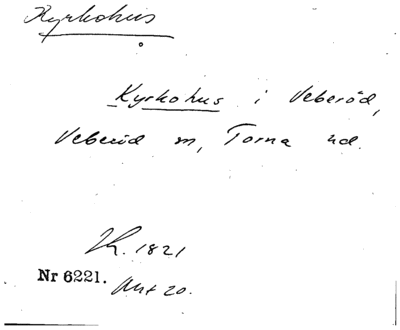 Kyrkohus
Kyrkohus i Veberöd,
Veberöd m, Torna hd.
1821
Nr 6221. Ant 20.